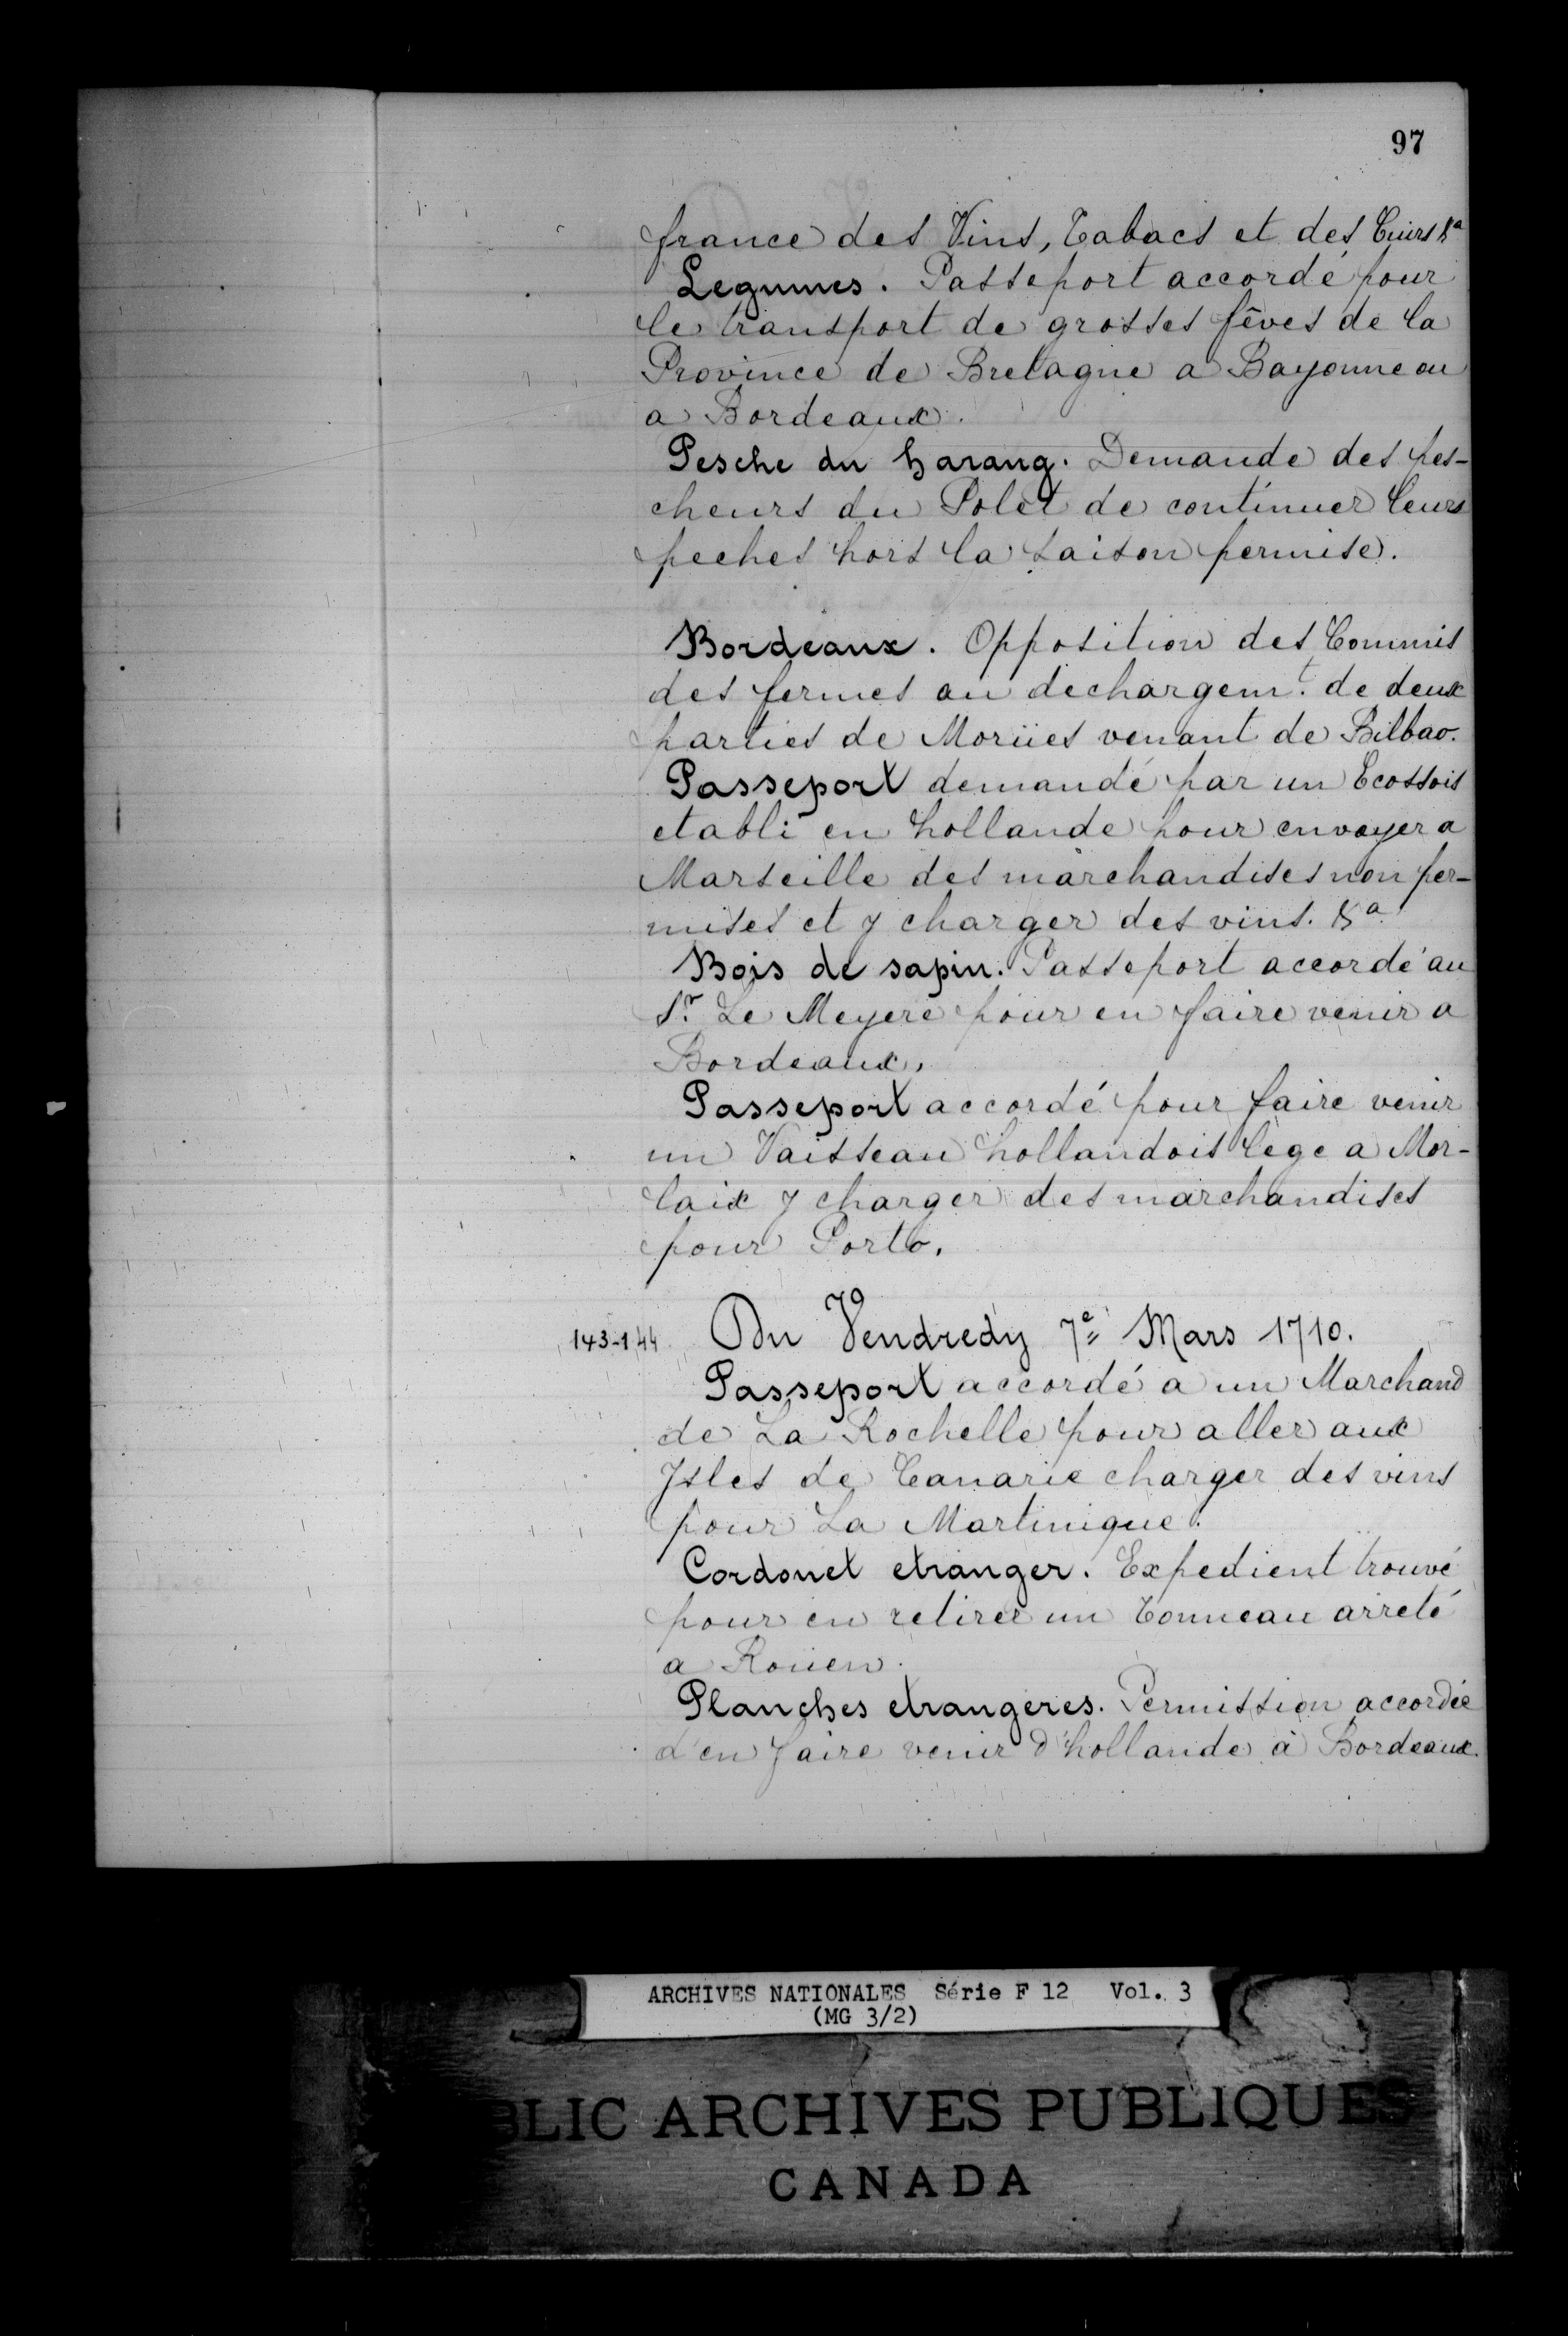 97
france des Vins, Tabacs et des Cuirs &a
Legumes. Passeport accordé pour
le transport de grosses fêves de la
Province de Bretagne a Bayonne ou
a Bordeaux.
Pesche du harang. Demande des pes-
cheurs du Polet de continuer leurs
peches hors la saison permise.
Bordeaux. Opposition des Commis
des fermes au dechargemt. de deux
parties de Morües venant de Bilbao.
Passeport demandé par un Ecossois
etabli en hollande pour envoyer a
Marseille des marchandises non per-
mises et y charger des vins. &a
Bois de sapin. Passeport accordé au
Sr. Le Meyere pour en faire venir a
Bordeaux.
Passeport accordé pour faire venir
un Vaisseau hollandois lege a Mor-
laix y charger des marchandises
pour Porto.
143-144 Du Vendredy 7e Mars 1710.
Passeport accordé a un Marchand
de La Rochelle pour aller aux
Isles de Canarie charger des vins
pour La Martinique.
Cordonet etranger. Expedient trouvé
pour en retirer un Tonneau arreté
a Roüen.
Planches etrangeres. Permission accordée
d'en faire venir d'hollande à Bordeaux.
ARCHIVES NATIONALES Série F 12 Vol. 3
(MG 3/2)
BLIC ARCHIVES PUBLIQUES
CANADA